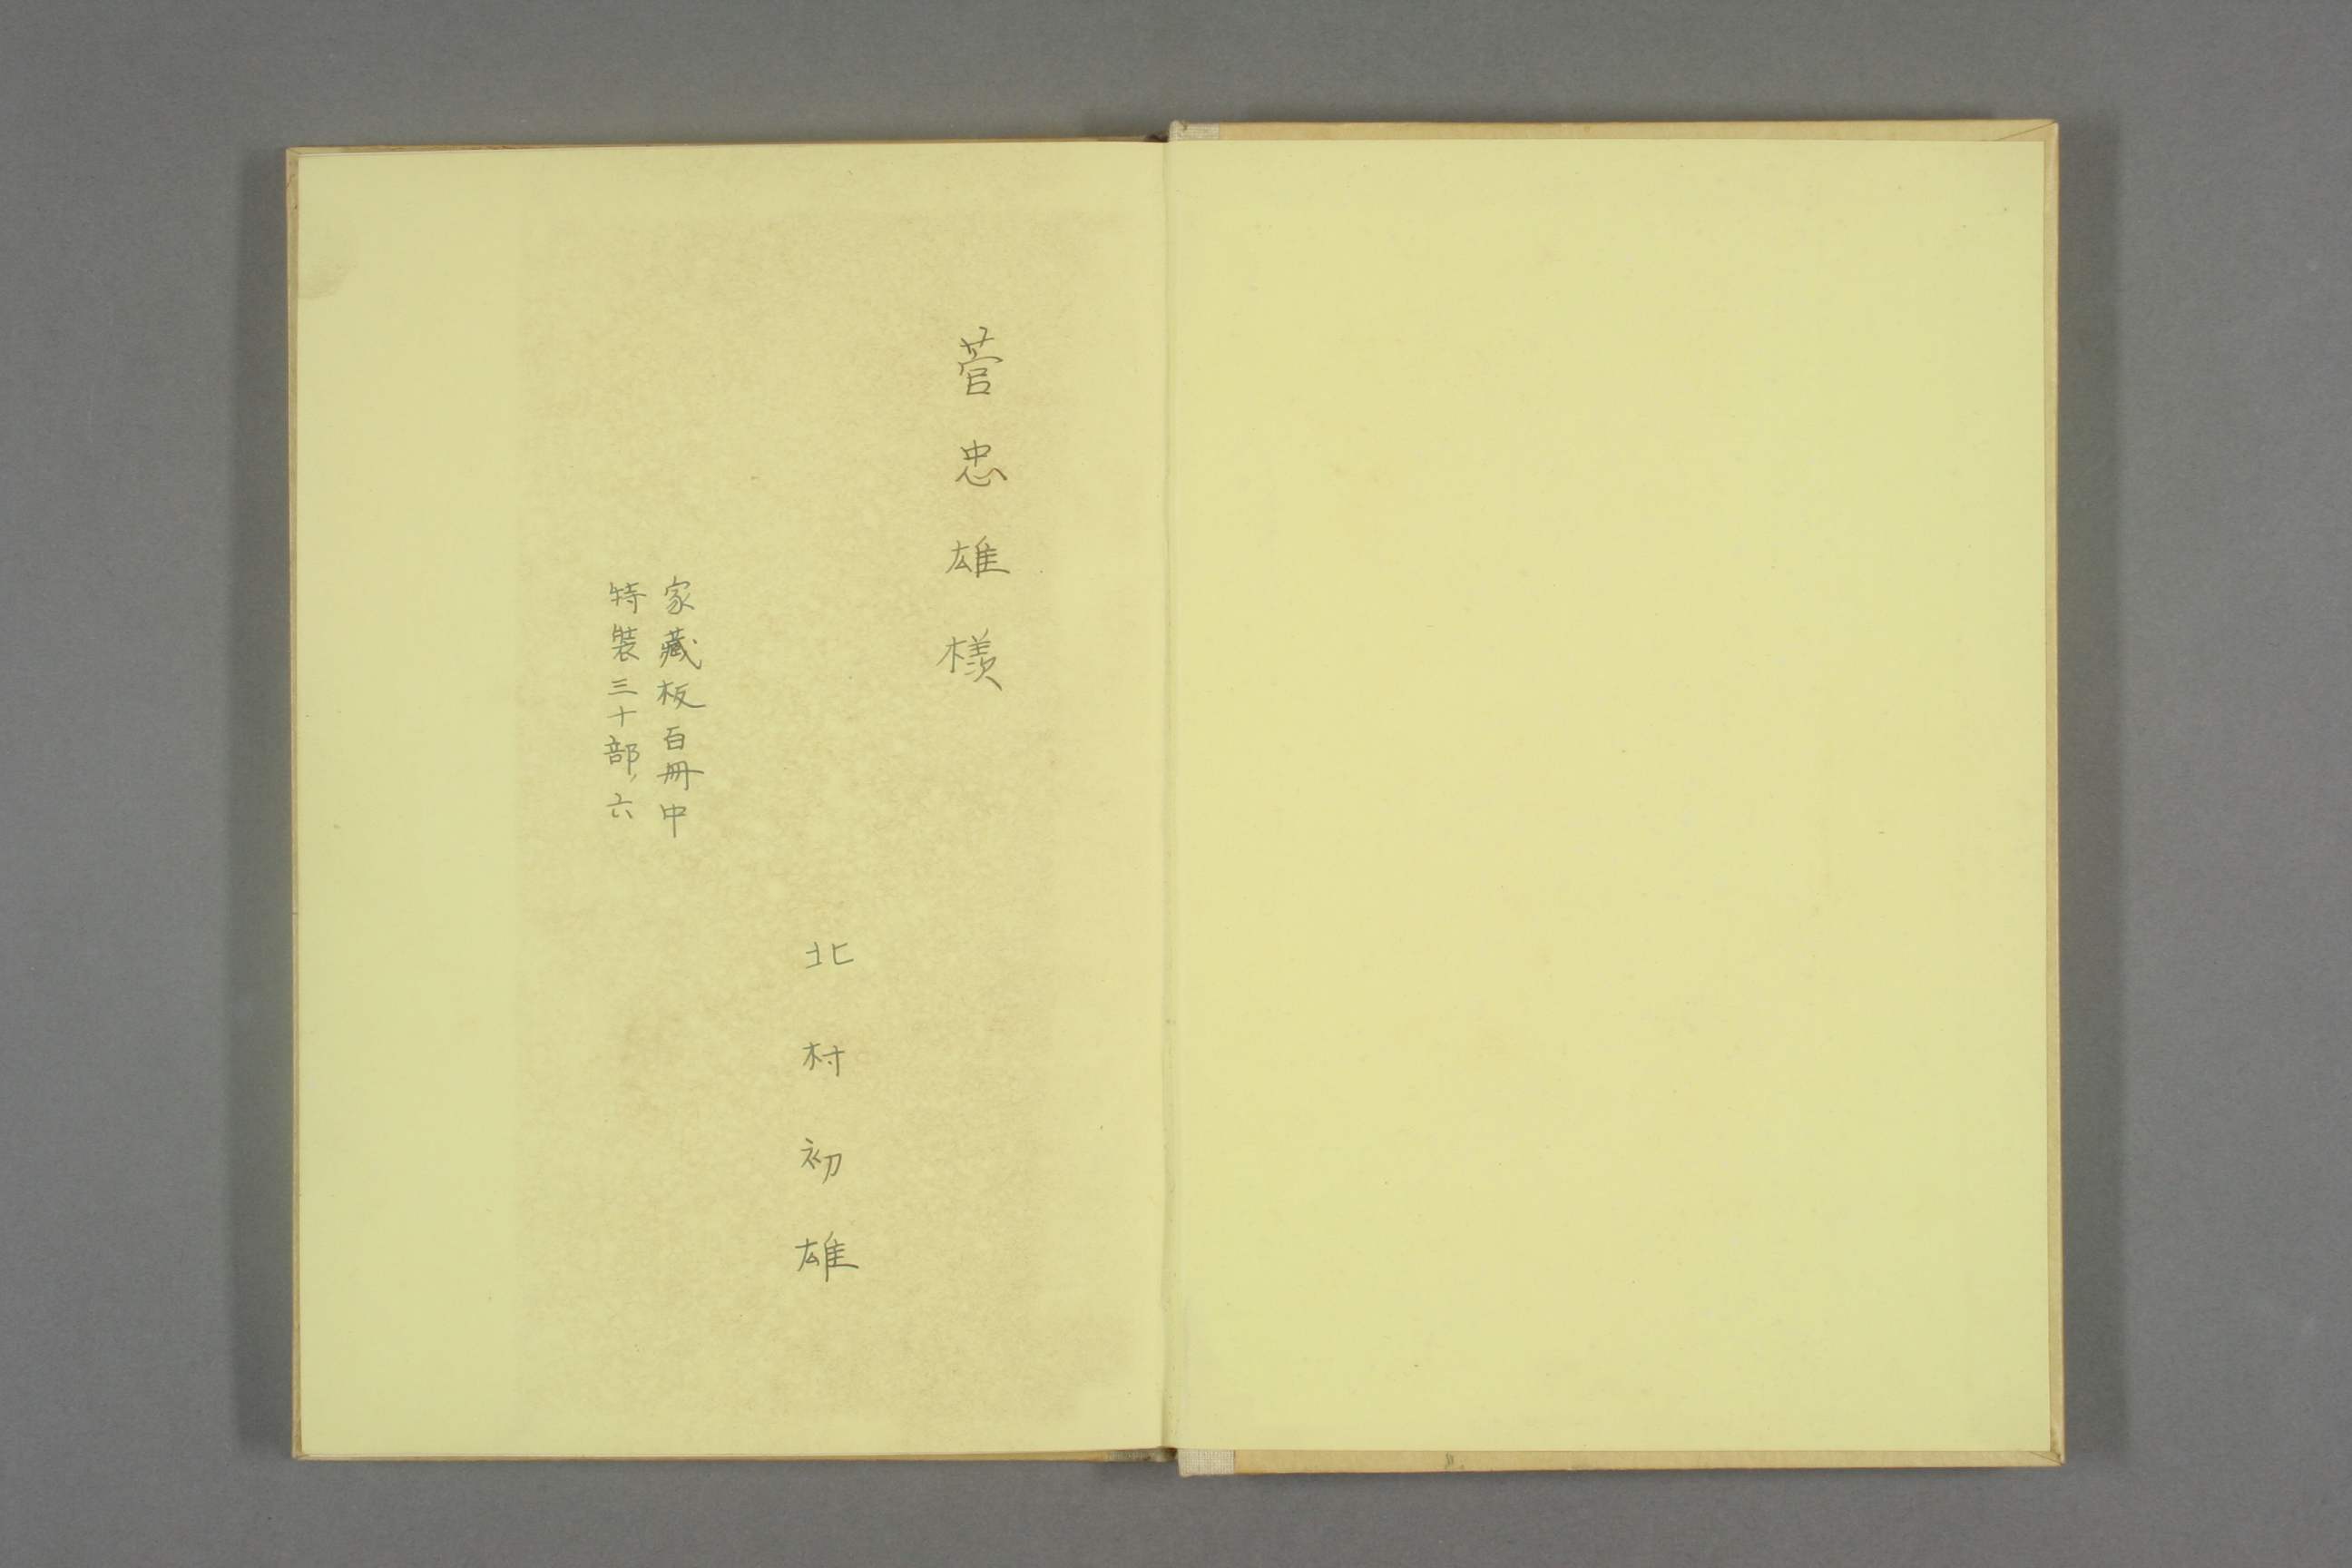 菅忠雄様
北村初雄
家藏板百冊中
特装三十部ノ六